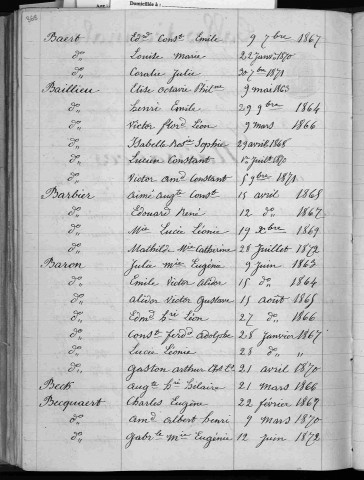 Domiciliés à :
Baert Ed^d Const^t Emile 9 7bre 1867
d° Louise Marie 22 janv^r 1870
d° Coralie Julie 30 7bre 1871
Baillieu Elise octavie Phil^ne 9 mai 1863
d° Henri Emile 29 9bre 1864
d° Victor flor^d Léon 9 mars 1866
d° Isabelle Ros^e Sophie 29 avril 1868
d° Lucien Constant 1^r juill^t 1870
d° Victor am^d Constant 5 9bre 1871
Barbier Aimé aug^te Const^t 15 avril 1865
d° Edouard René 12 d° 1867
d° M^ie Lucie Léonie 19 Xbre 1869
d° Mathild^e M^ie Catherine 28 Juillet 1872
Baron Julie M^ie Eugénie 9 juin 1863
d° Emile Victor 15 d° 1864
d° Victor Gustave 15 août 1865
d° Edm^d h^ri Léon 27 d° 1866
d° Const^t ferd^d Adolphe 28 janvier 1867
d° Lucie Léonie 28 d° "
d° Gaston arthur 21 avril 1870
Beck Aug^te h^ri hilaire 21 mars 1866
Becquaert Charles Eugène 22 février 1869
d° am^d albert henri 9 mars 1870
d° Gabr^le M^ie Eugénie 12 juin 1872